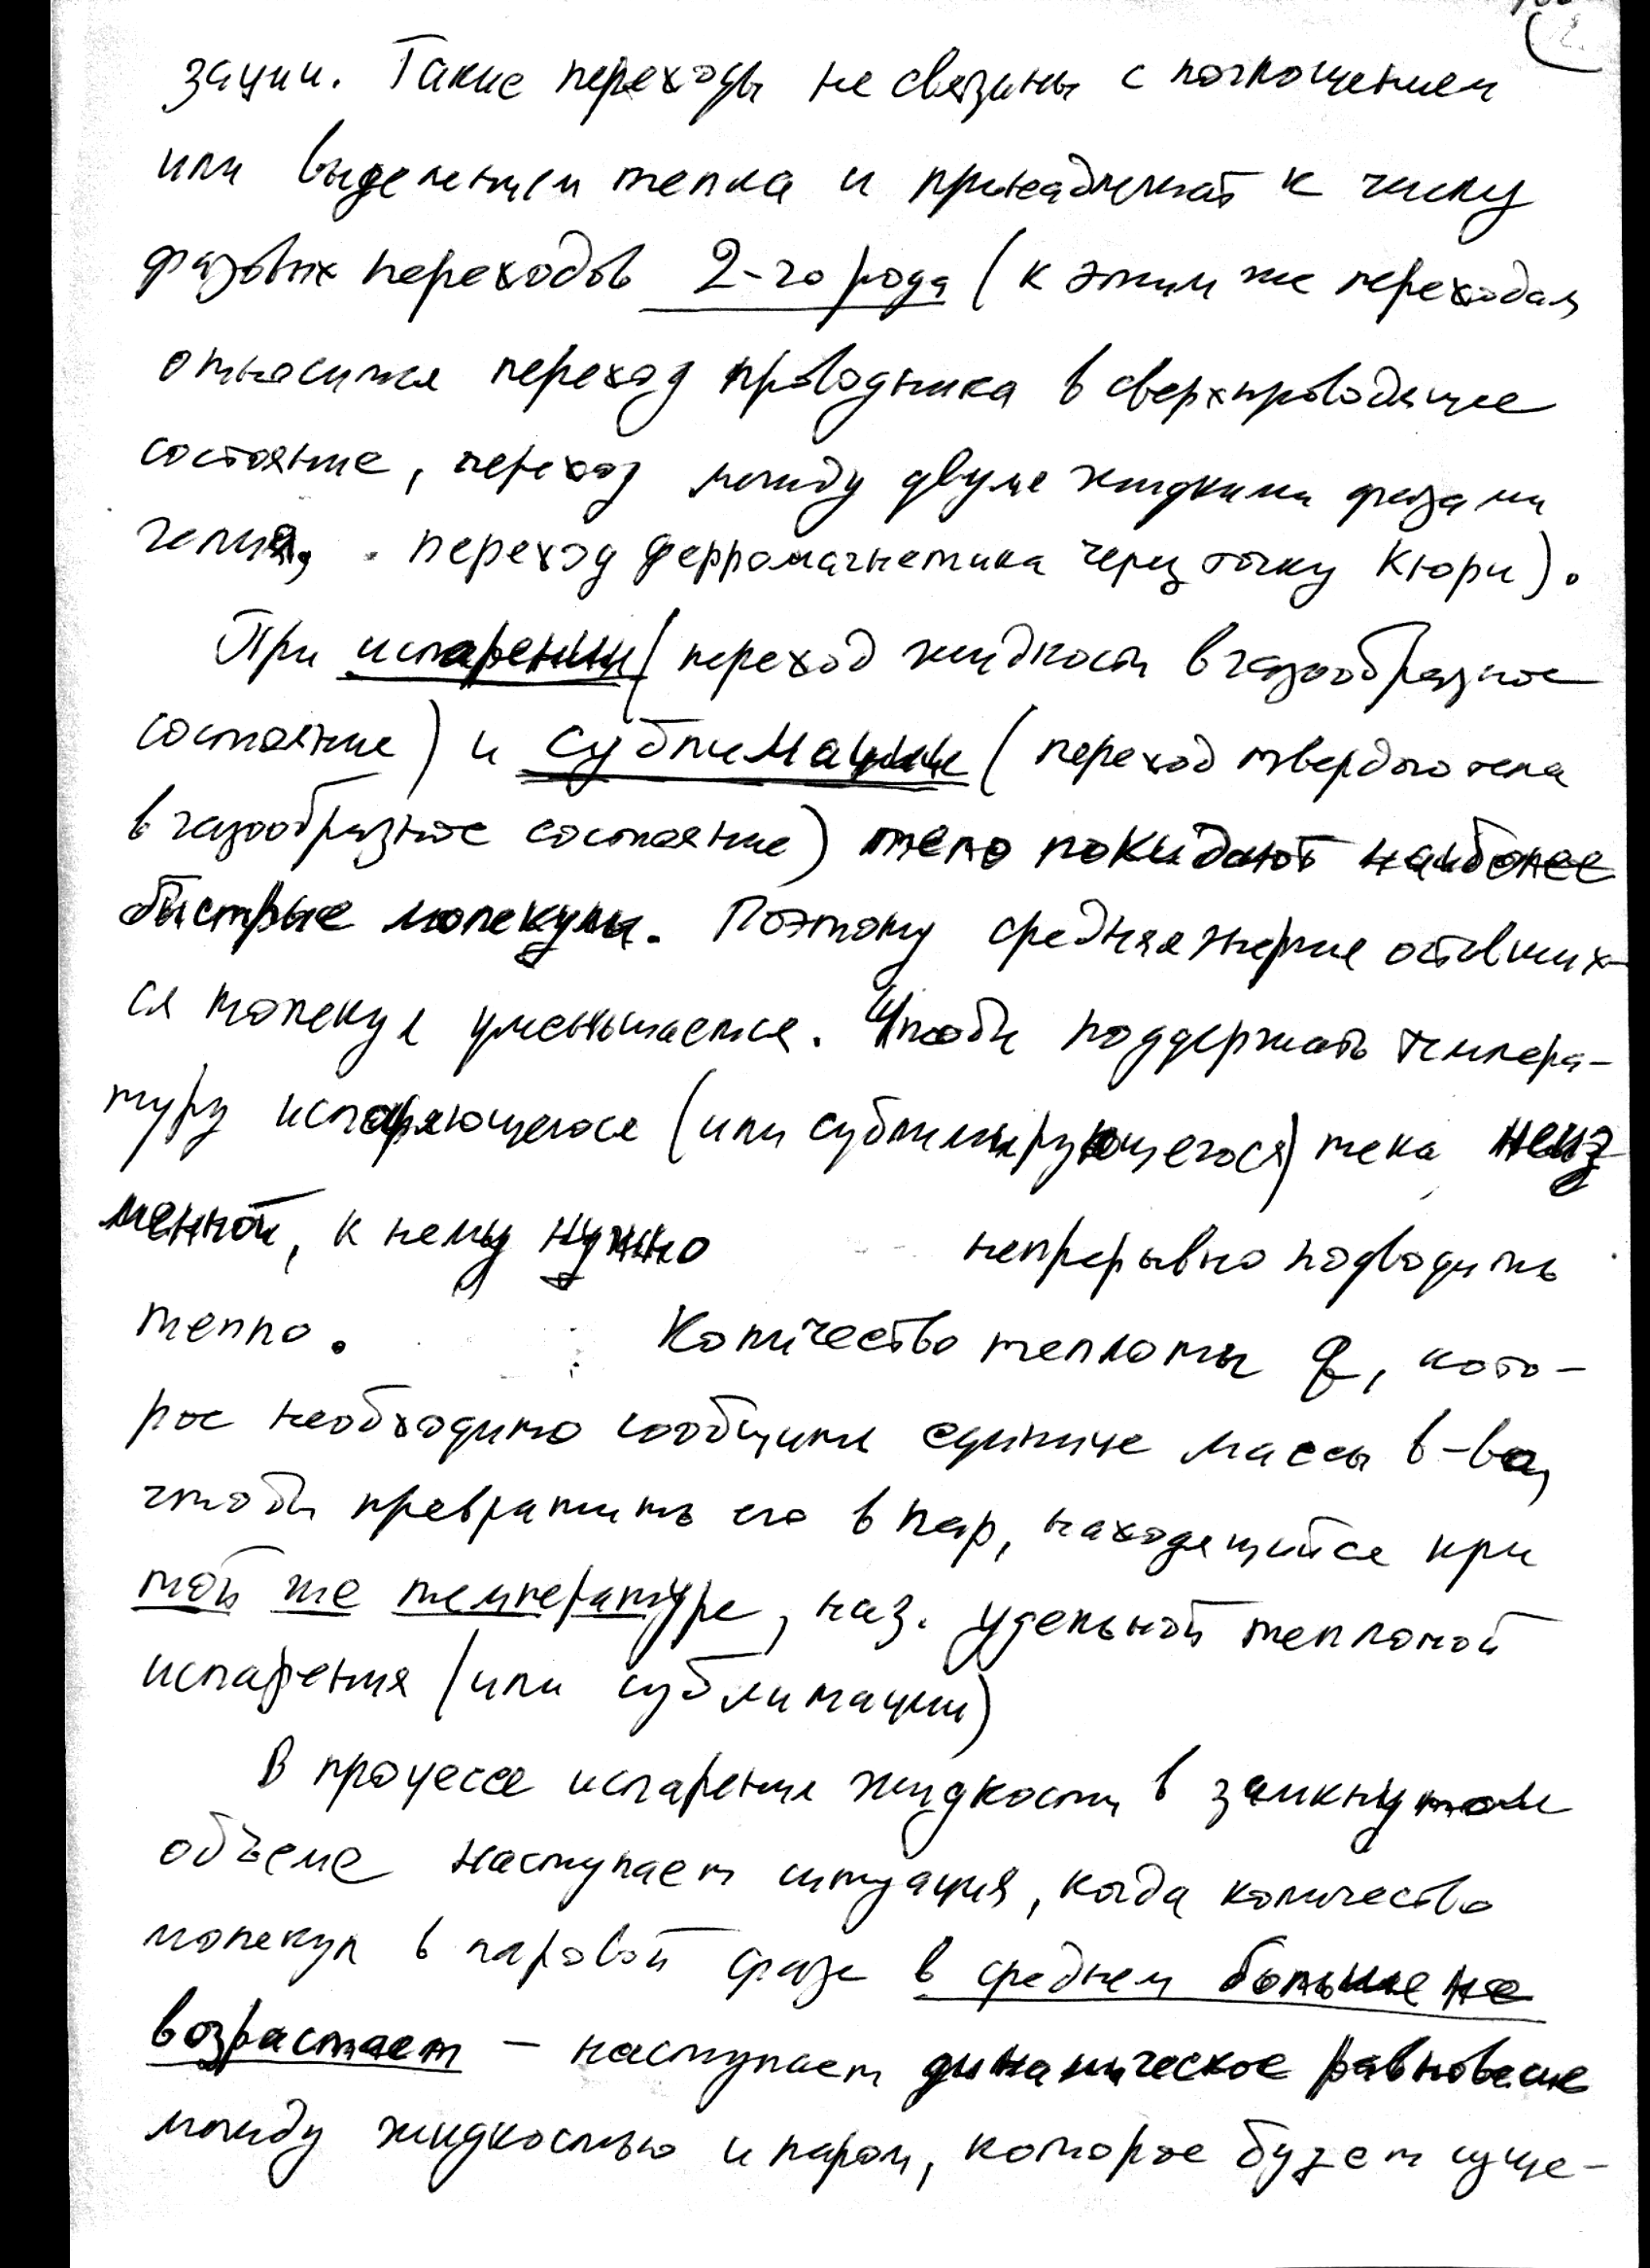 зации. Такие переходы не связаны с поглощением
или выделением тепла и принадлежат к числу
фазовых переходов 2-го рода (к этим же переходам
относится переход проводника в сверхпроводящее
состояние, переход между двумя жидкими фазами
гелия, переход ферромагнетика через точку Кюри).
При испарении (переход жидкости в газообразное
состояние) и сублимации (переход твердого тела
в газообразное состояние) тело покидают наиболее
быстрые молекулы. Поэтому средняя энергия оставших-
ся молекул уменьшается. Чтобы поддержать темпера-
туру испаряющегося (или сублимирующегося) тела неиз
менной, к нему нужно непрерывно подводить
тепло. Количество теплоты q, кото-
рое необходимо сообщить единице массы в-ва,
чтобы превратить его в пар, находящийся при
той же температуре, наз. удельной теплотой
испарения (или сублимации)
В процессе испарения жидкости в замкнутом
объеме наступает ситуация, когда количество
молекул в паровой фазе в среднем больше не
возрастает – наступает динамическое равновесие
между жидкостью и паром, которое будет суще-